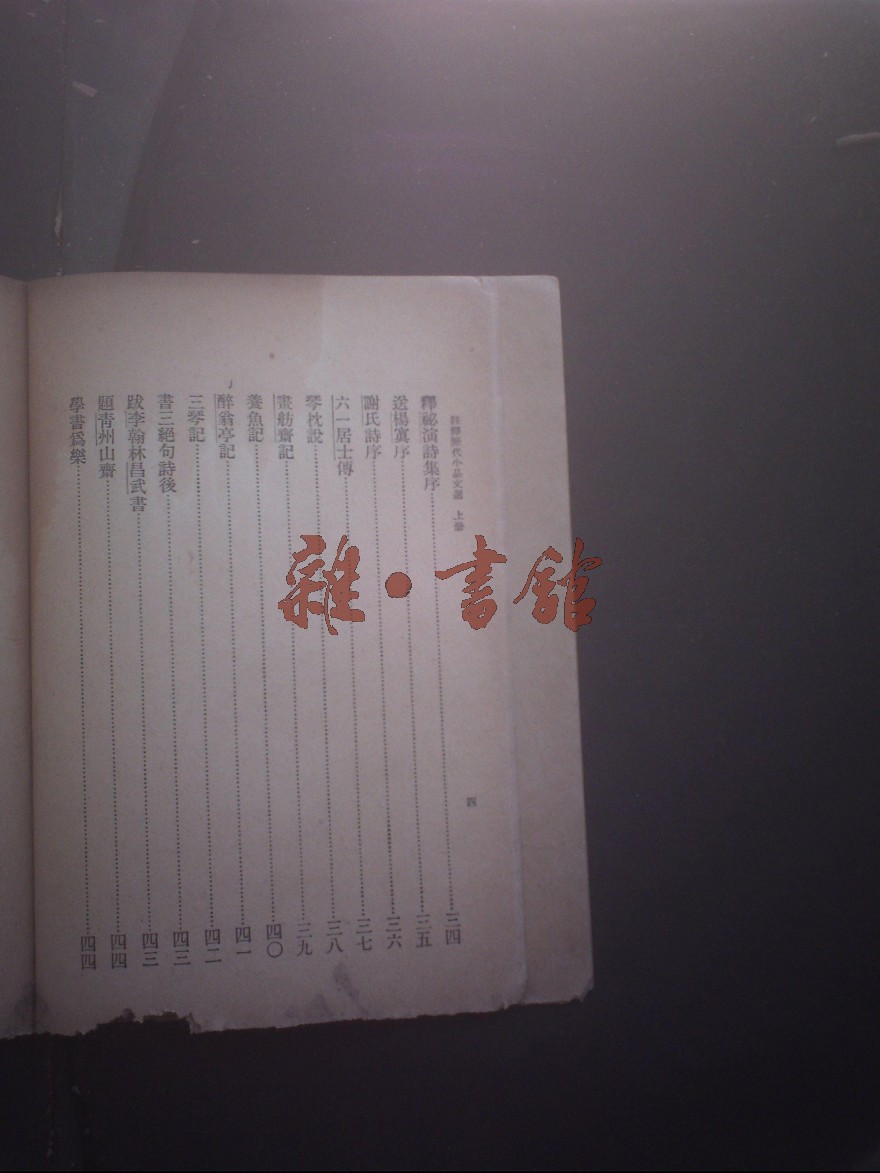 註釋歷代小品文選 上册
四
釋祕演詩集序……三四
送楊寘序……三五
謝氏詩序……三六
六一居士傳……三七
琴枕說……三八
畫舫齋記……三九
養魚記……四〇
醉翁亭記……四一
三琴記……四二
書三絕句詩後……四三
跋李翰林昌武書……四三
題青州山齋……四四
學書爲樂……四四
雜•書館